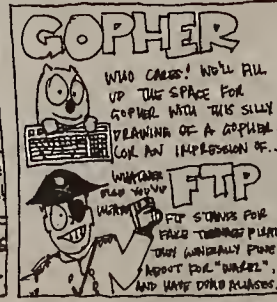 GOPHER
WHO CARES! WE'LL FILL
UP THE SPACE FOR
GOPHER WITH THIS SILLY
DRAWING OF A GOPHER
(OR AN IMPRESSION OF...
WHATEVER
FTP
FTP STANDS FOR
FAKE TEENAGE PIRATE
THEY GENERALLY
ABOUT FOR "WAREZ",
AND HAVE DUMB ALIASES.